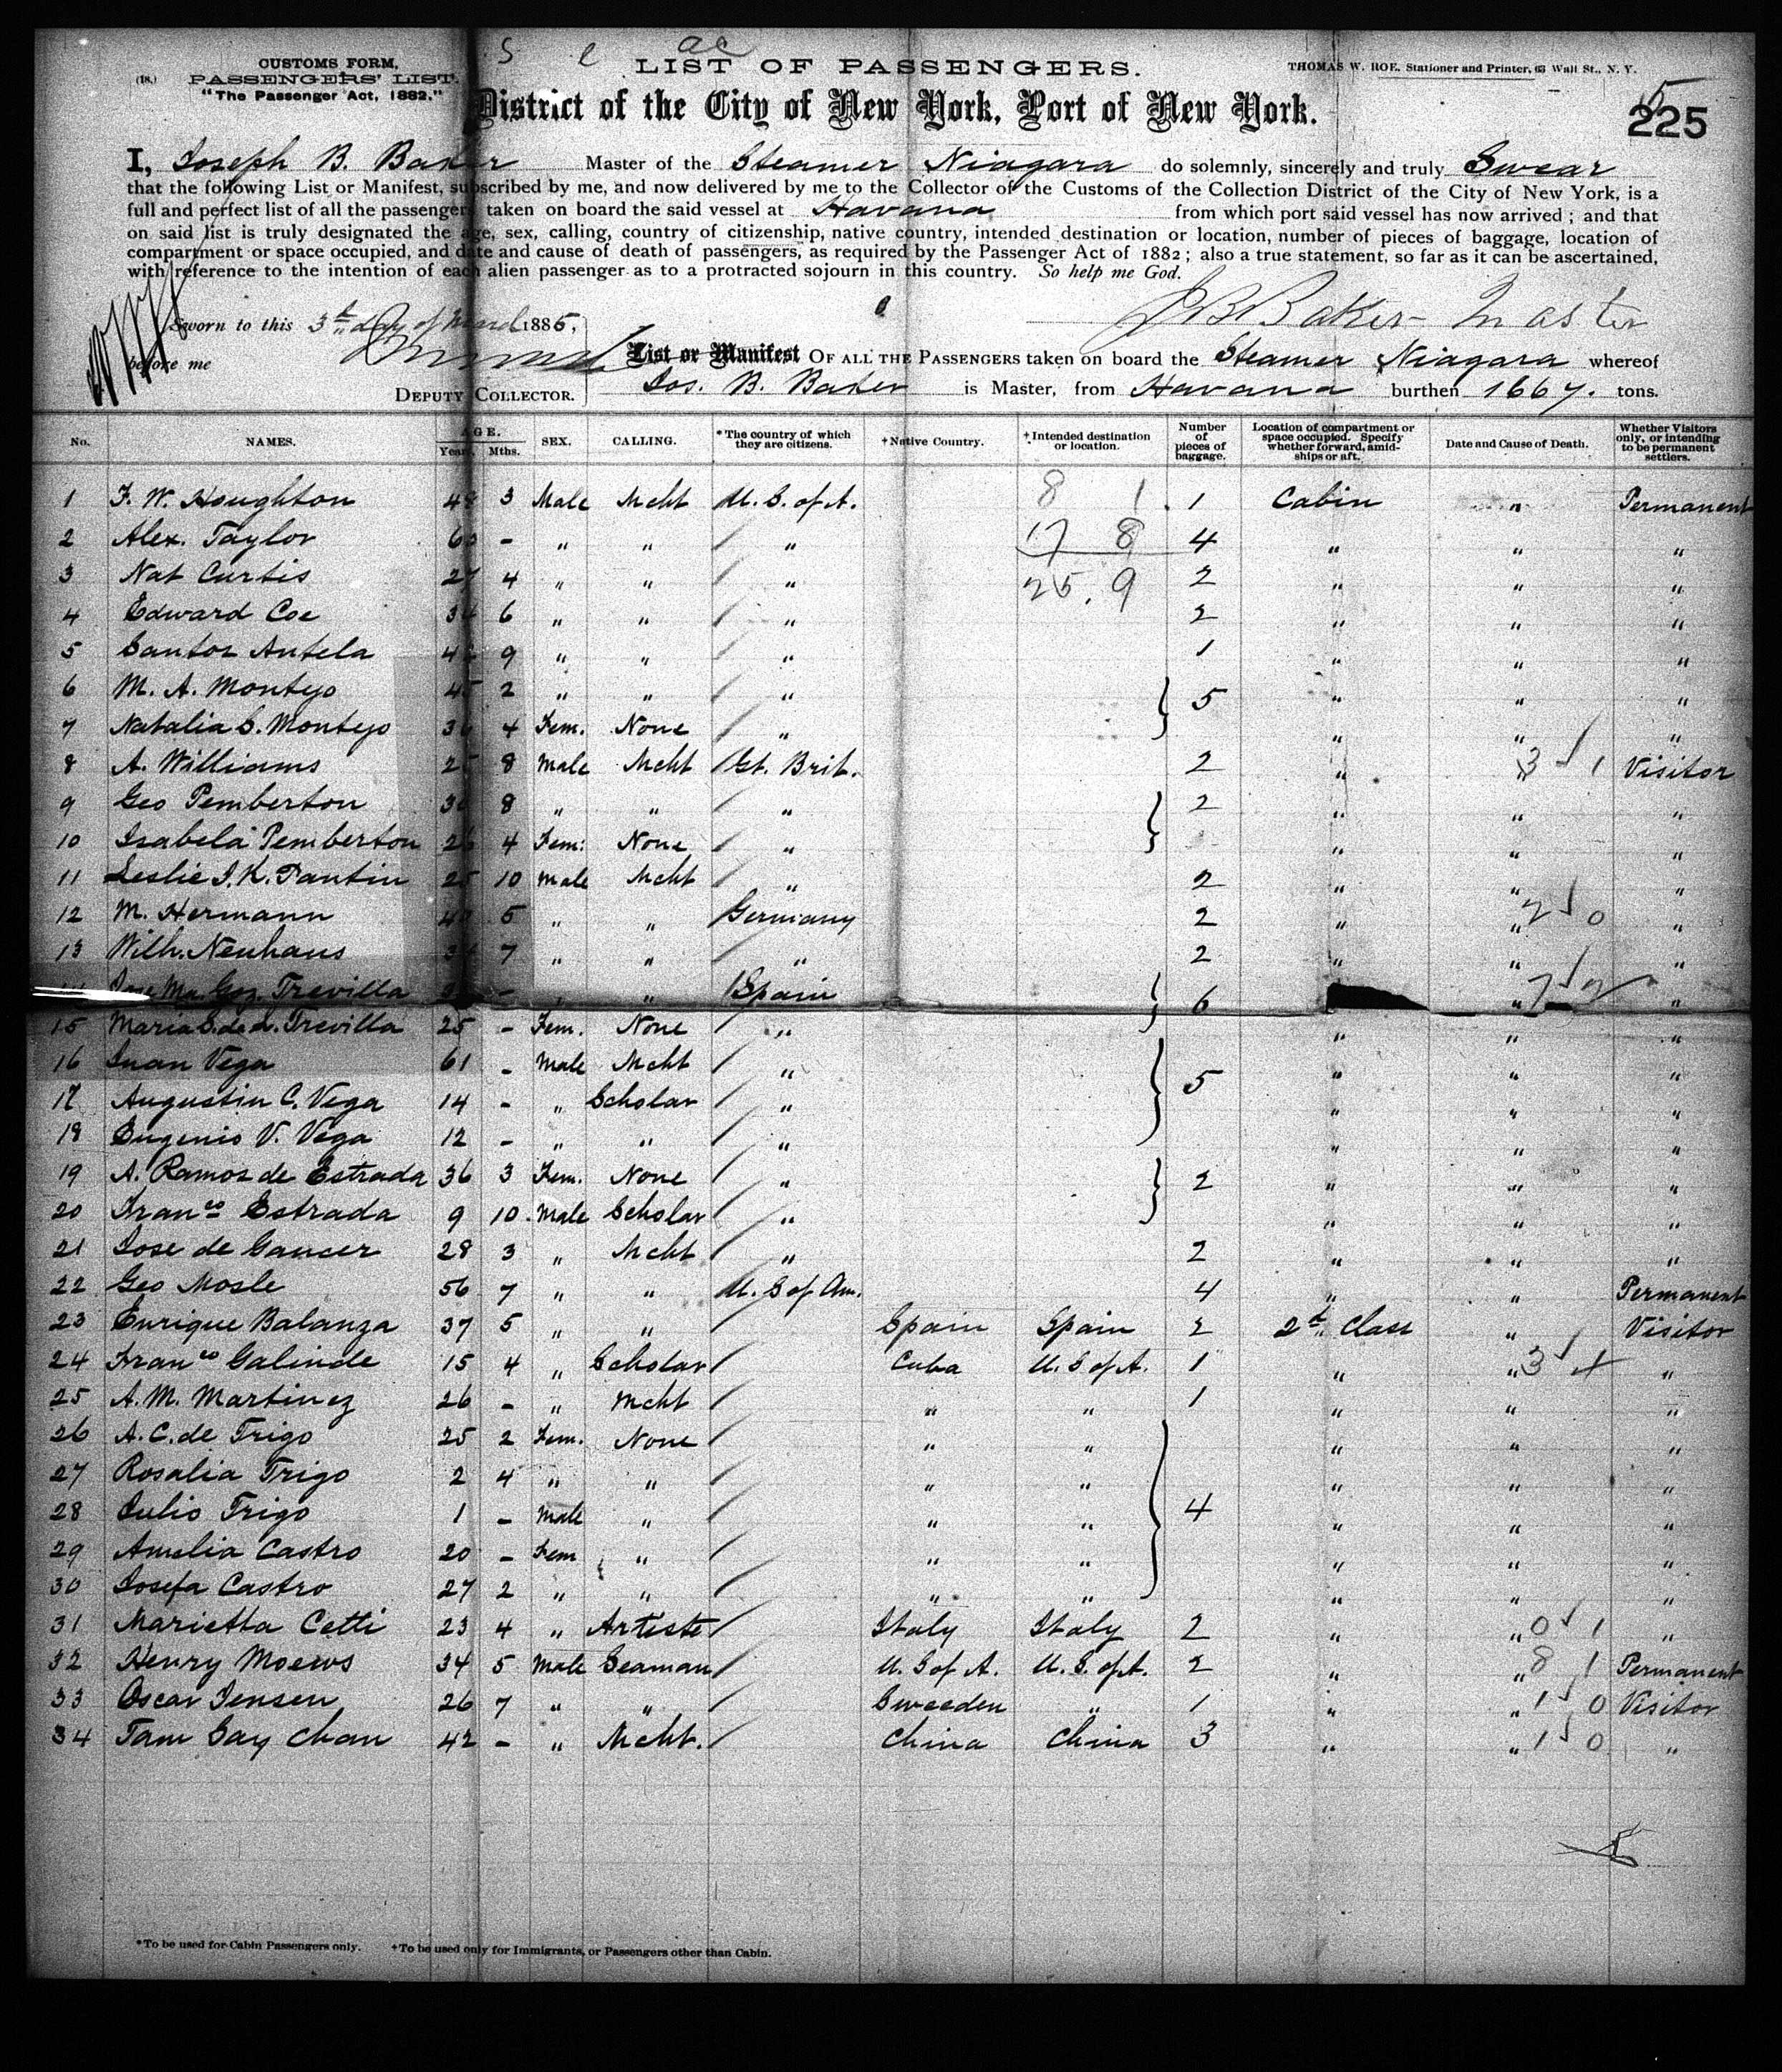 S e ac
CUSTOMS FORM,
(18.) PASSENGERS' LIST.
"The Passenger Act, 1882."
LIST OF PASSENGERS.
THOMAS W. ROE, Stationer and Printer, 63 Wall St., N. Y.
District of the City of New York, Port of New York.
5
225
I, Joseph B. Baker Master of the Steamer Niagara do solemnly, sincerely and truly Swear
that the following List or Manifest, subscribed by me, and now delivered by me to the Collector of the Customs of the Collection District of the City of New York, is a
full and perfect list of all the passengers taken on board the said vessel at Havana from which port said vessel has now arrived; and that
on said list is truly designated the age, sex, calling, country of citizenship, native country, intended destination or location, number of pieces of baggage, location of
compartment or space occupied, and date and cause of death of passengers, as required by the Passenger Act of 1882; also a true statement, so far as it can be ascertained,
with reference to the intention of each alien passenger as to a protracted sojourn in this country. So help me God.
Sworn to this 3d day of March 1885,
J B Baker Master
before me
DEPUTY COLLECTOR.
List or Manifest OF ALL THE PASSENGERS taken on board the Steamer Niagara whereof
Jos. B. Baker is Master, from Havana burthen 1667. tons.
No. NAMES. AGE. Years. Mths. SEX. CALLING. *The country of which they are citizens. †Native Country. †Intended destination or location. Number of pieces of baggage. Location of compartment or space occupied. Specify whether forward, amidships or aft. Date and Cause of Death. Whether Visitors only, or intending to be permanent settlers.
1 F. W. Houghton 48 3 Male Mcht U. S. of A. 8 1 1 Cabin " Permanent
2 Alex. Taylor - " " " 17 8 4 " " "
3 Nat Curtis 27 4 " " " 25. 9 2 " " "
4 Edward Coe 6 " " " 2 " " "
5 Santos Antela 9 " " " 1 " " "
6 M. A. Montejo 45 2 " " " 5 " " "
7 Natalia S. Montejo 36 4 Fem. None " " " "
8 A. Williams 25 8 Male Mcht Gt. Brit. 2 " " 3 1 Visitor
9 Geo Pemberton 8 " " " 2 " " "
10 Isabela Pemberton 26 4 Fem: None " " " "
11 Leslie J. K. Pantin 25 10 Male Mcht " 2 " " "
12 M. Hermann 5 " " Germany 2 " " 2 0 "
13 Wilh. Neuhaus 7 " " " 2 " " "
14 Jose Ma. Goz. Trevilla - " " Spain 6 " 7 2 "
15 Maria S. de L. Trevilla 25 - Fem. None " " " "
16 Juan Vega 61 - Male Mcht " 5 " " "
17 Augustin C. Vega 14 - " Scholar " " " "
18 Eugenio V. Vega 12 - " " " " " "
19 A. Ramos de Estrada 36 3 Fem. None " 2 " " "
20 Franco Estrada 9 10 Male Scholar " " " "
21 Jose de Gaucer 28 3 " Mcht " 2 " " "
22 Geo Mosle 56 7 " " U. S of Am. 4 " " Permanent
23 Enrique Balanza 37 5 " " Spain Spain 2 2d Class " Visitor
24 Franco Galinde 15 4 " Scholar Cuba U. S of A. 1 " " 3 4 "
25 A. M. Martinez 26 - " Mcht " " 1 " " "
26 A. C. de Trigo 25 2 Fem. None " " " " "
27 Rosalia Trigo 2 4 " " " " " " "
28 Julio Trigo 1 - Male " " " 4 " " "
29 Amelia Castro 20 - Fem " " " " " "
30 Josefa Castro 27 2 " " " " " " "
31 Marietta Cetti 23 4 " Arteste Italy Italy 2 " " 0 1 "
32 Henry Moews 34 5 Male Seaman U. S of A. U. S. of A. 2 " " 8 1 Permanent
33 Oscar Jensen 26 7 " " Sweeden " 1 " " 1 0 Visitor
34 Tam Say Chan 42 - " Mcht. China China 3 " " 1 0 "
*To be used for Cabin Passengers only. †To be used only for Immigrants, or Passengers other than Cabin.